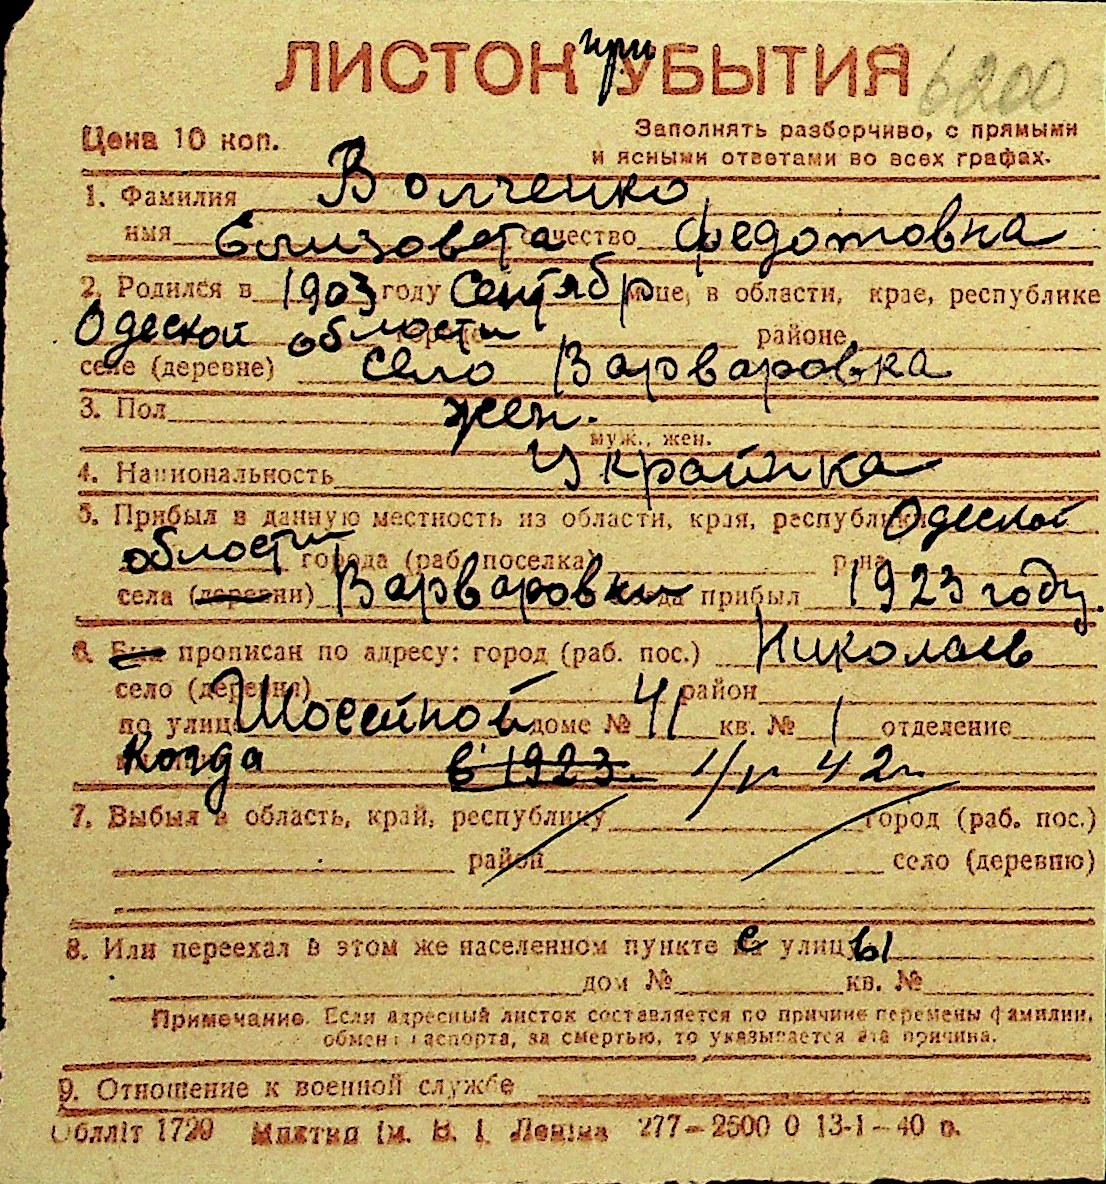 ЛИСТОК при УБЫТИЯ 6200
Цена 10 коп.
Заполнять разборчиво, с прямыми
и ясными ответами во всех графах.
1. Фамилия Волченко
имя Елизовета отчество Федотовна
2. Родился в 1903 году Сентябр м-це, в области, крае, республике
Одеской области городе районе
селе (деревне) село Варваровка
3. Пол жен.
муж., жен.
4. Национальность Украинка
5. Прибыл в данную местность из области, края, республики Одеской
области города (раб. поселка) р-на
села (деревни) Варваровки когда прибыл 1923 году.
6. Был прописан по адресу: город (раб. пос.) Николаев
село (деревня) район
по улице Шосейной доме № 41 кв. № 1 отделение
Когда в 1923. 42 г.
7. Выбыл в область, край, республику город (раб. пос.)
район село (деревню)
8. Или переехал в этом же населенном пункте с улицы
дом № кв. №
Примечание. Если адресный листок составляется по причине перемены фамилии,
обмена паспорта, за смертью, то указывается эта причина.
9. Отношение к военной службе
Облліт 1729 ім. В. І. Леніна 277—2500 0 13-1—40 р.